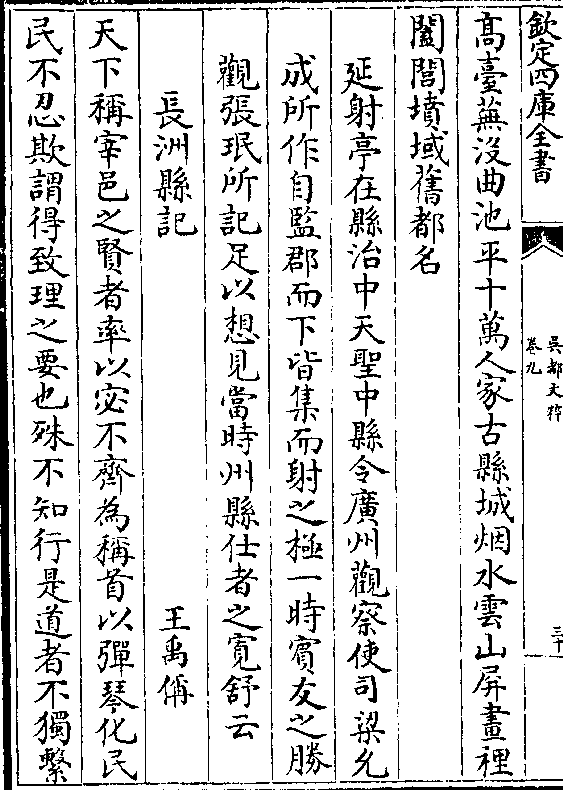 欽定四庫全書
吳都文粹
卷九
三十
高臺蕪沒曲池平十萬人家古縣城烟水雲山屏畫裡
闔閭墳域舊都名
延射亭在縣治中天聖中縣令廣州觀察使司梁允
成所作自監郡而下皆集而射之極一時賓友之勝
觀張珉所記足以想見當時州縣仕者之寛舒云
長洲縣記
王禹偁
天下稱宰邑之賢者率以宓不齊為稱首以彈琴化民
民不忍欺謂得致理之要也殊不知行是道者不獨繫